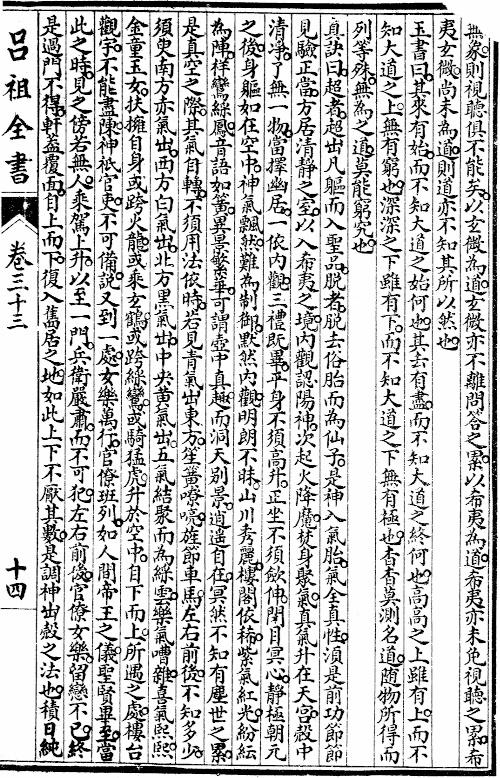 無象則視聽俱不能矣以玄微為道玄微亦不離問答之累以希夷為道希夷亦未免視聽之累希
夷玄微尚未為道則道亦不知其所以然也
玉書曰其來有始而不知大道之始何也其去有盡而不知大道之終何也高高之上雖有上而不
知大道之上無有窮也深深之下雖有下而不知大道之下無有極也杳杳莫測名道隨物所得而
列等殊無為之道莫能窮究也
真訣曰超者超出凡軀而入聖品脫者脫去俗胎而為仙子是神入氣胎氣全真性須是前功節節
見驗正當方居清靜之室以入希夷之境內觀認陽神次起火降魔焚身聚氣真氣升在天宮殼中
清淨了無一物當擇幽居一依內觀三禮既畢平身不須高升正坐不須斂伸閉目冥心靜極朝元
之後身軀如在空中神氣飄然難為制御默然內觀明朗不昧山川秀麗樓閣依稀紫氣紅光紛紜
為陣祥鸞綵鳳音語如簧異景繁華可謂壺中真趣而洞天別景逍遙自在冥然不知有塵世之累
是真空之際其氣自轉不須用法依時若見青氣出東方笙簧嘹喨旌節車馬左右前後不知多少
須臾南方赤氣出西方白氣出北方黑氣出中央黃氣出五氣結聚而為綵雲樂氣嘈雜喜氣熙熙
金童玉女扶擁自身或跨火龍或乘玄鶴或跨綵鸞或騎猛虎升於空中自下而上所遇之處樓臺
觀宇不能盡陳神祇官吏不可備說又到一處女樂萬行官僚班列如人間帝王之儀聖賢畢至當
此之時見之傍若無人乘駕上升以至一門兵衛嚴肅而不可犯左右前後官僚女樂留戀不已終
是過門不得軒蓋覆面自上而下復入舊居之地如此上下不厭其數是調神出殼之法也積日純
呂祖全書
卷三十三
十四